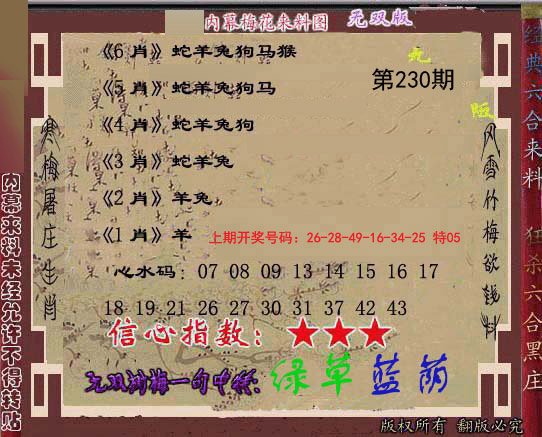 内幕梅花来料图 无双版
《6 肖》蛇羊兔狗马猴
无
第230期
《5 肖》蛇羊兔狗马
版
《4 肖》蛇羊兔狗
《3 肖》蛇羊兔
《2 肖》羊兔
《1 肖》羊
上期开奖号码：26-28-49-16-34-25 特05
心水码：07 08 09 13 14 15 16 17
18 19 21 26 27 30 31 37 42 43
信心指数：★★★
绿草蓝荫
版权所有 翻版必究
寒梅屠庄生肖
风雪竹梅欲钱料
内幕来料未经允许不得转贴
经典六合来料
狂杀六合黑庄